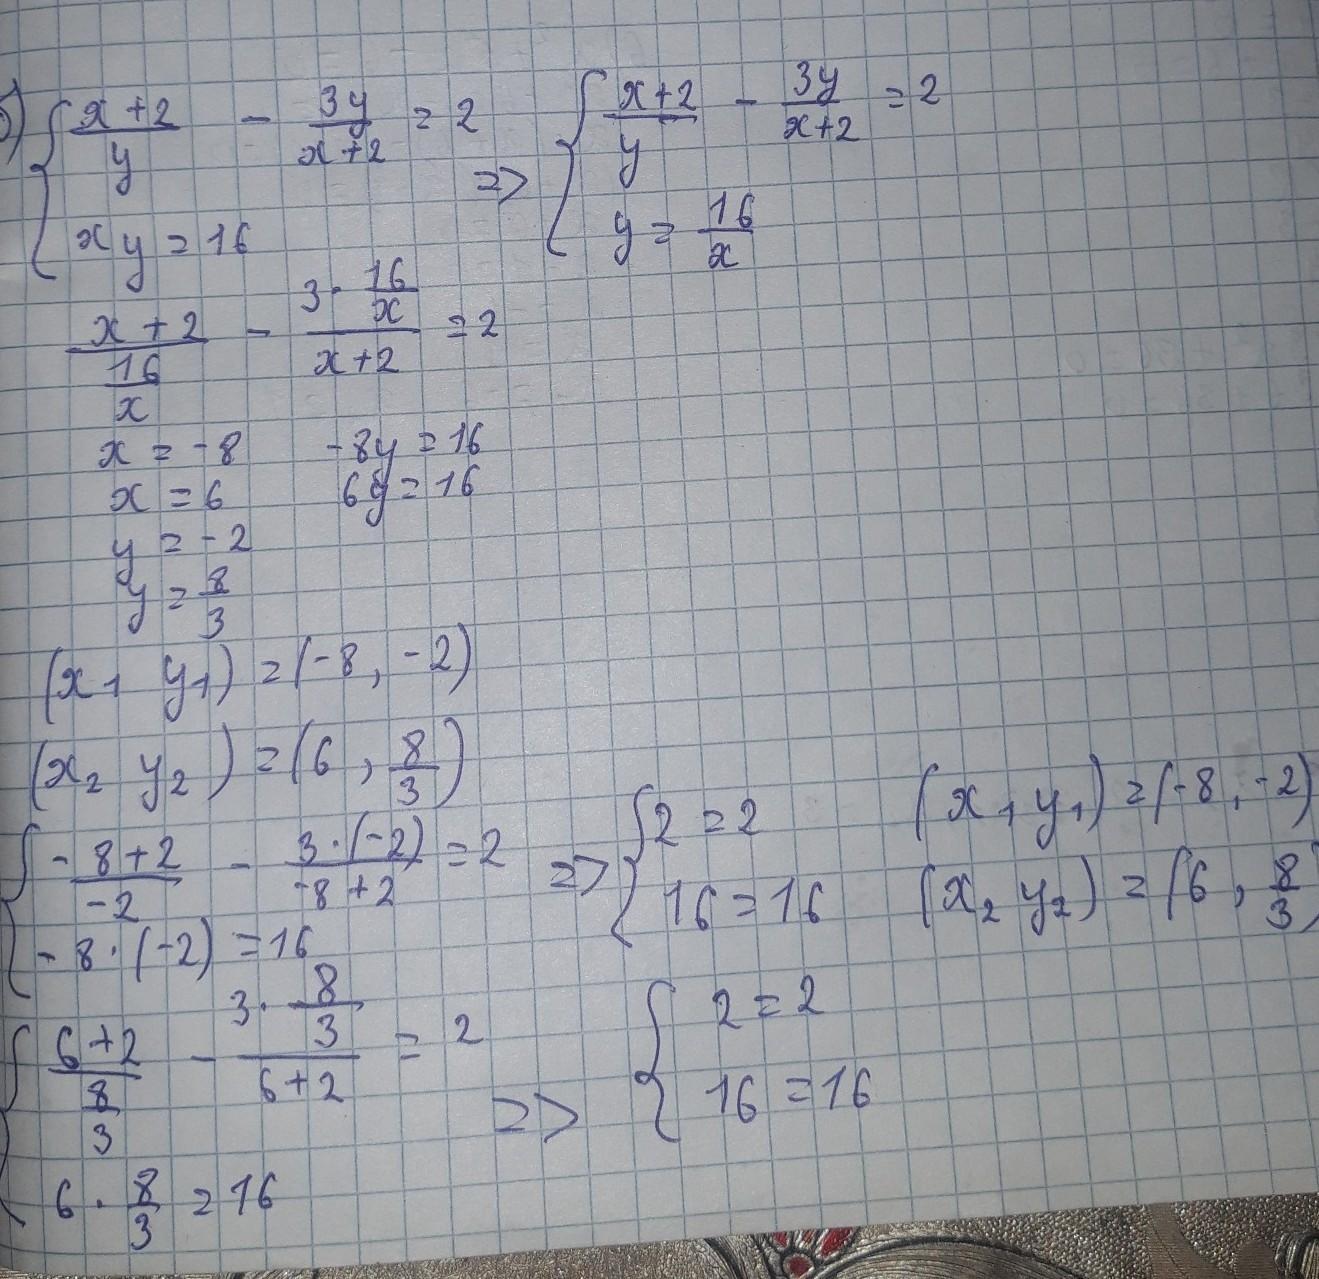 б) { (x+2)/y - 3y/(x+2) = 2 => { (x+2)/y - 3y/(x+2) = 2
xy = 16    y = 16/x
(x+2)/(16/x) - (3·16/x)/(x+2) = 2
x = -8    -8y = 16
x = 6    6y = 16
y = -2
y = 8/3
(x₁ y₁) = (-8, -2)
(x₂ y₂) = (6, 8/3)
{ (-8+2)/(-2) - (3·(-2))/(-8+2) = 2 => { 2 = 2    (x₁ y₁) = (-8, -2)
-8·(-2) = 16    16 = 16    (x₂ y₂) = (6, 8/3)
{ (6+2)/(8/3) - (3·8/3)/(6+2) = 2 => { 2 = 2
6·8/3 = 16    16 = 16